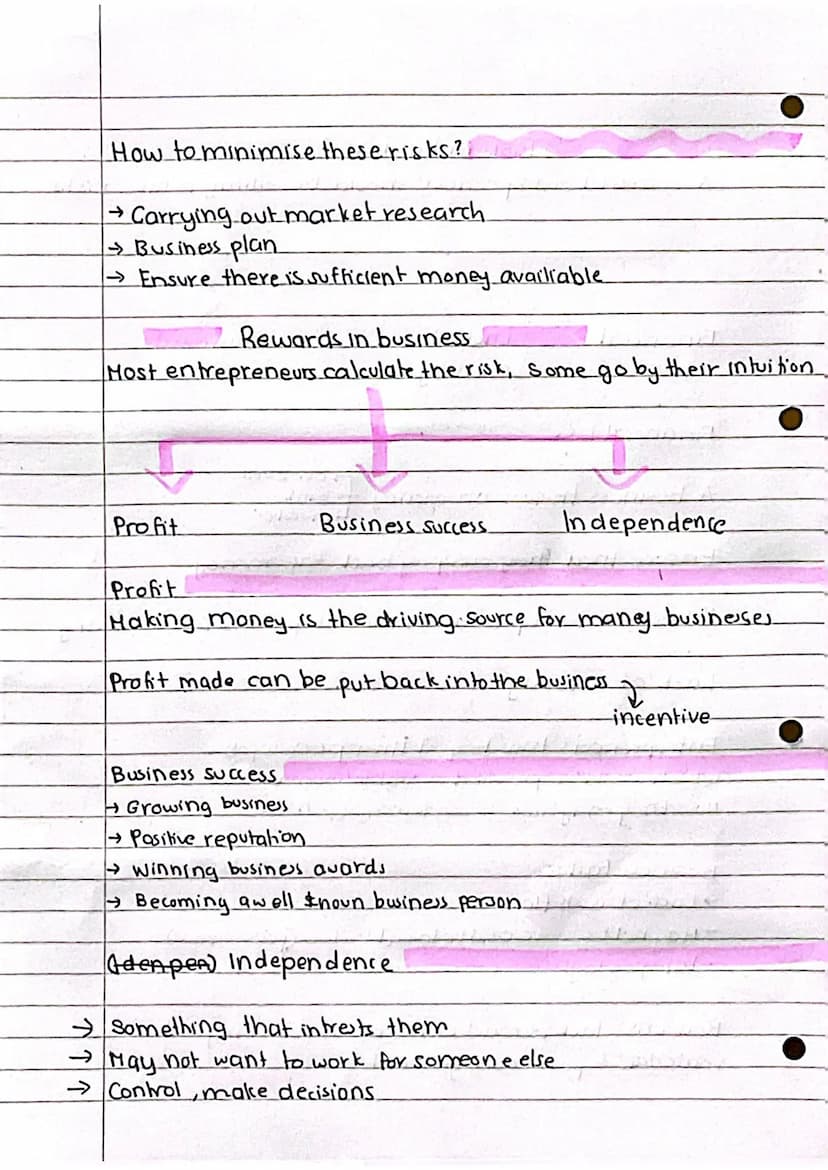 How to minimise these risks?
→ Carrying out market research
→ Business plan
→ Ensure there is sufficient money availiable
Rewards in business
Most entrepreneurs calculate the risk, some go by their intuition
Profit Business success Independence
Profit
Making money is the driving source for maney businesses
Profit made can be put back into the business
incentive
Business success
→ Growing business
→ Positive reputation
→ Winning business awards
→ Becoming a well known business person
(Idenpen) Independence
→ Something that intrests them
→ May not want to work for someone else
→ Control, make decisions